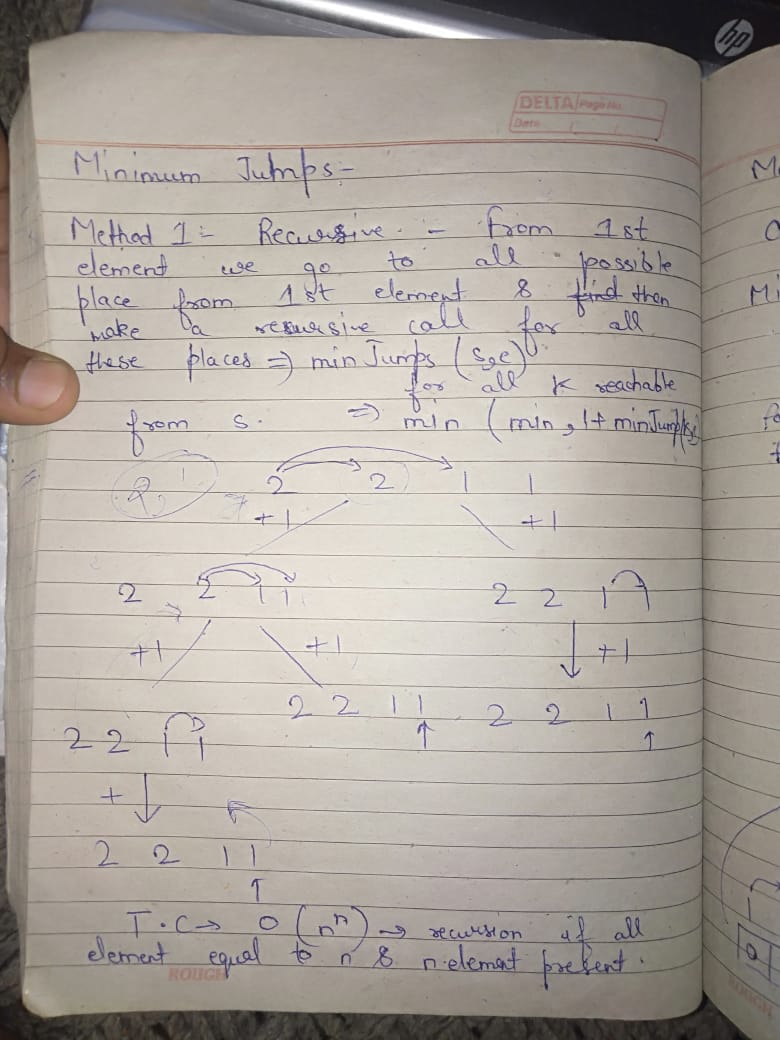 hp
DELTA Page No.
Date
Minimum Jumps -
Method 1:- Recursive. - from 1st
element we go to all possible
place from 1st element & find then
make a recursive call for all
these places => minJumps (s,e)
for all K reachable
from s. => min (min, 1 + minJump(k,
2 2 1 1
+1 +1
2 2 1 1 2 2 1 1
+1 +1 +1
2 2 1 1 2 2 1 1
2 2 1 1
+
2 2 1 1
T.C → O (nⁿ) → recursion if all
element equal to n & n.element present.
ROUGH